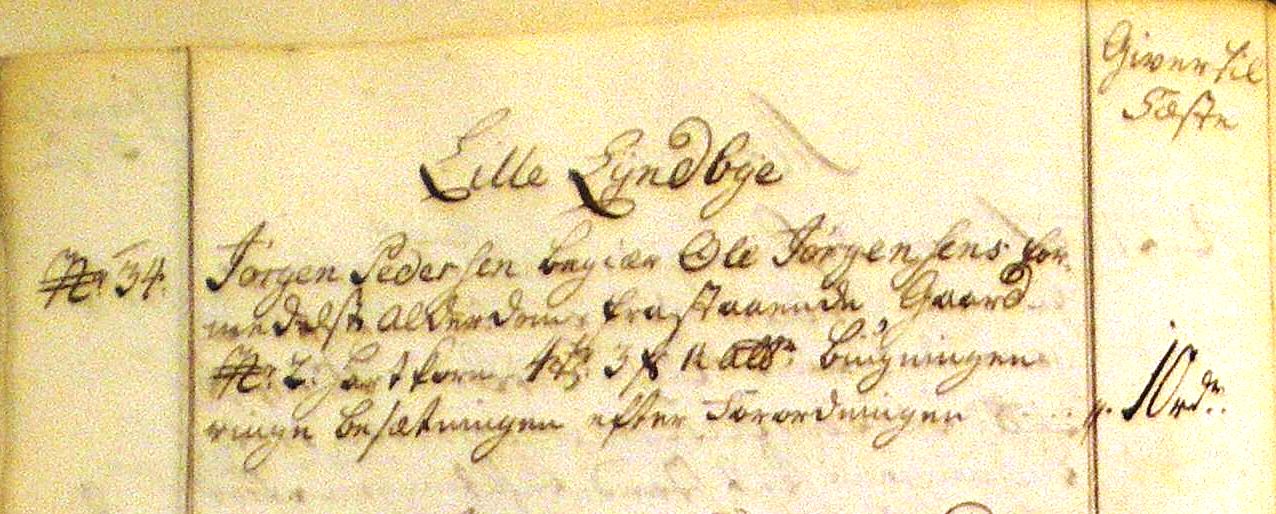 Giver til
Fæste
Lille Lyndbye
No. 34. Jørgen Pedersen begiær Ole Jørgensens for-
medelst Alderdom frastaaende Gaard
No. 2. Hartkorn 4 td 3 sk Alb. Bÿgningen
ringe Besætningen efter Forordningen 10 rdr.